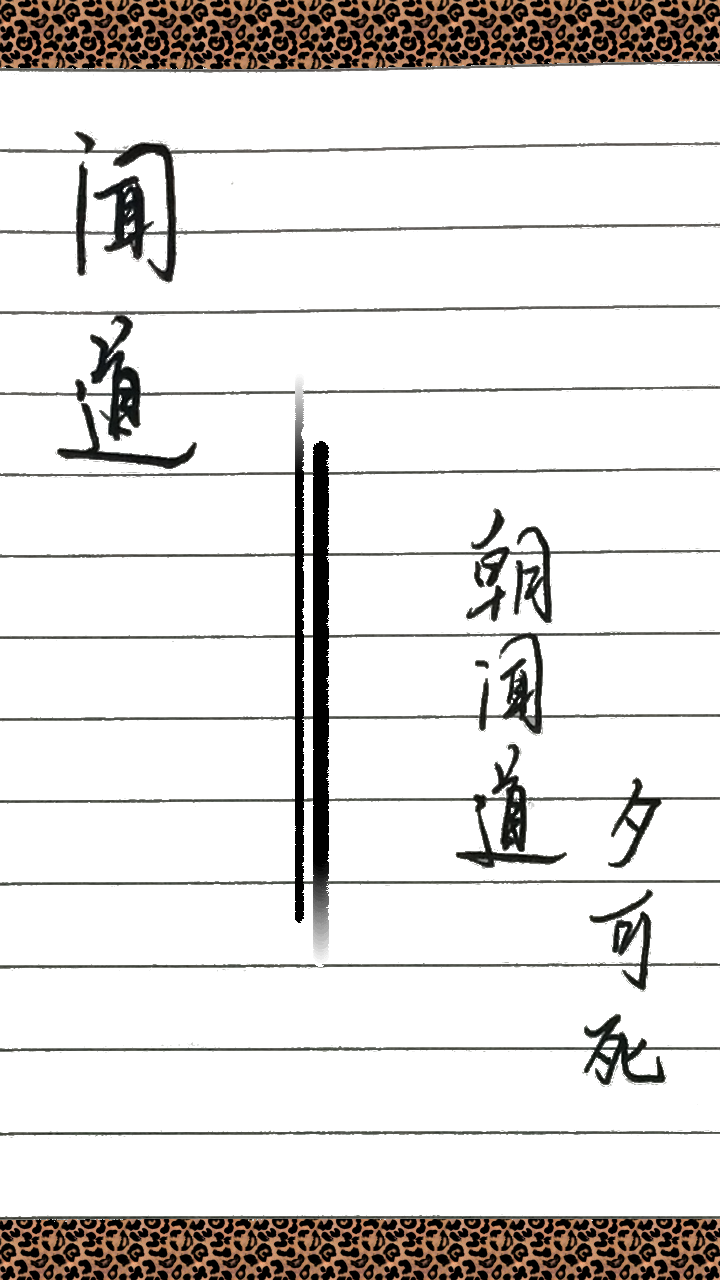 闻道
朝闻道
夕可死